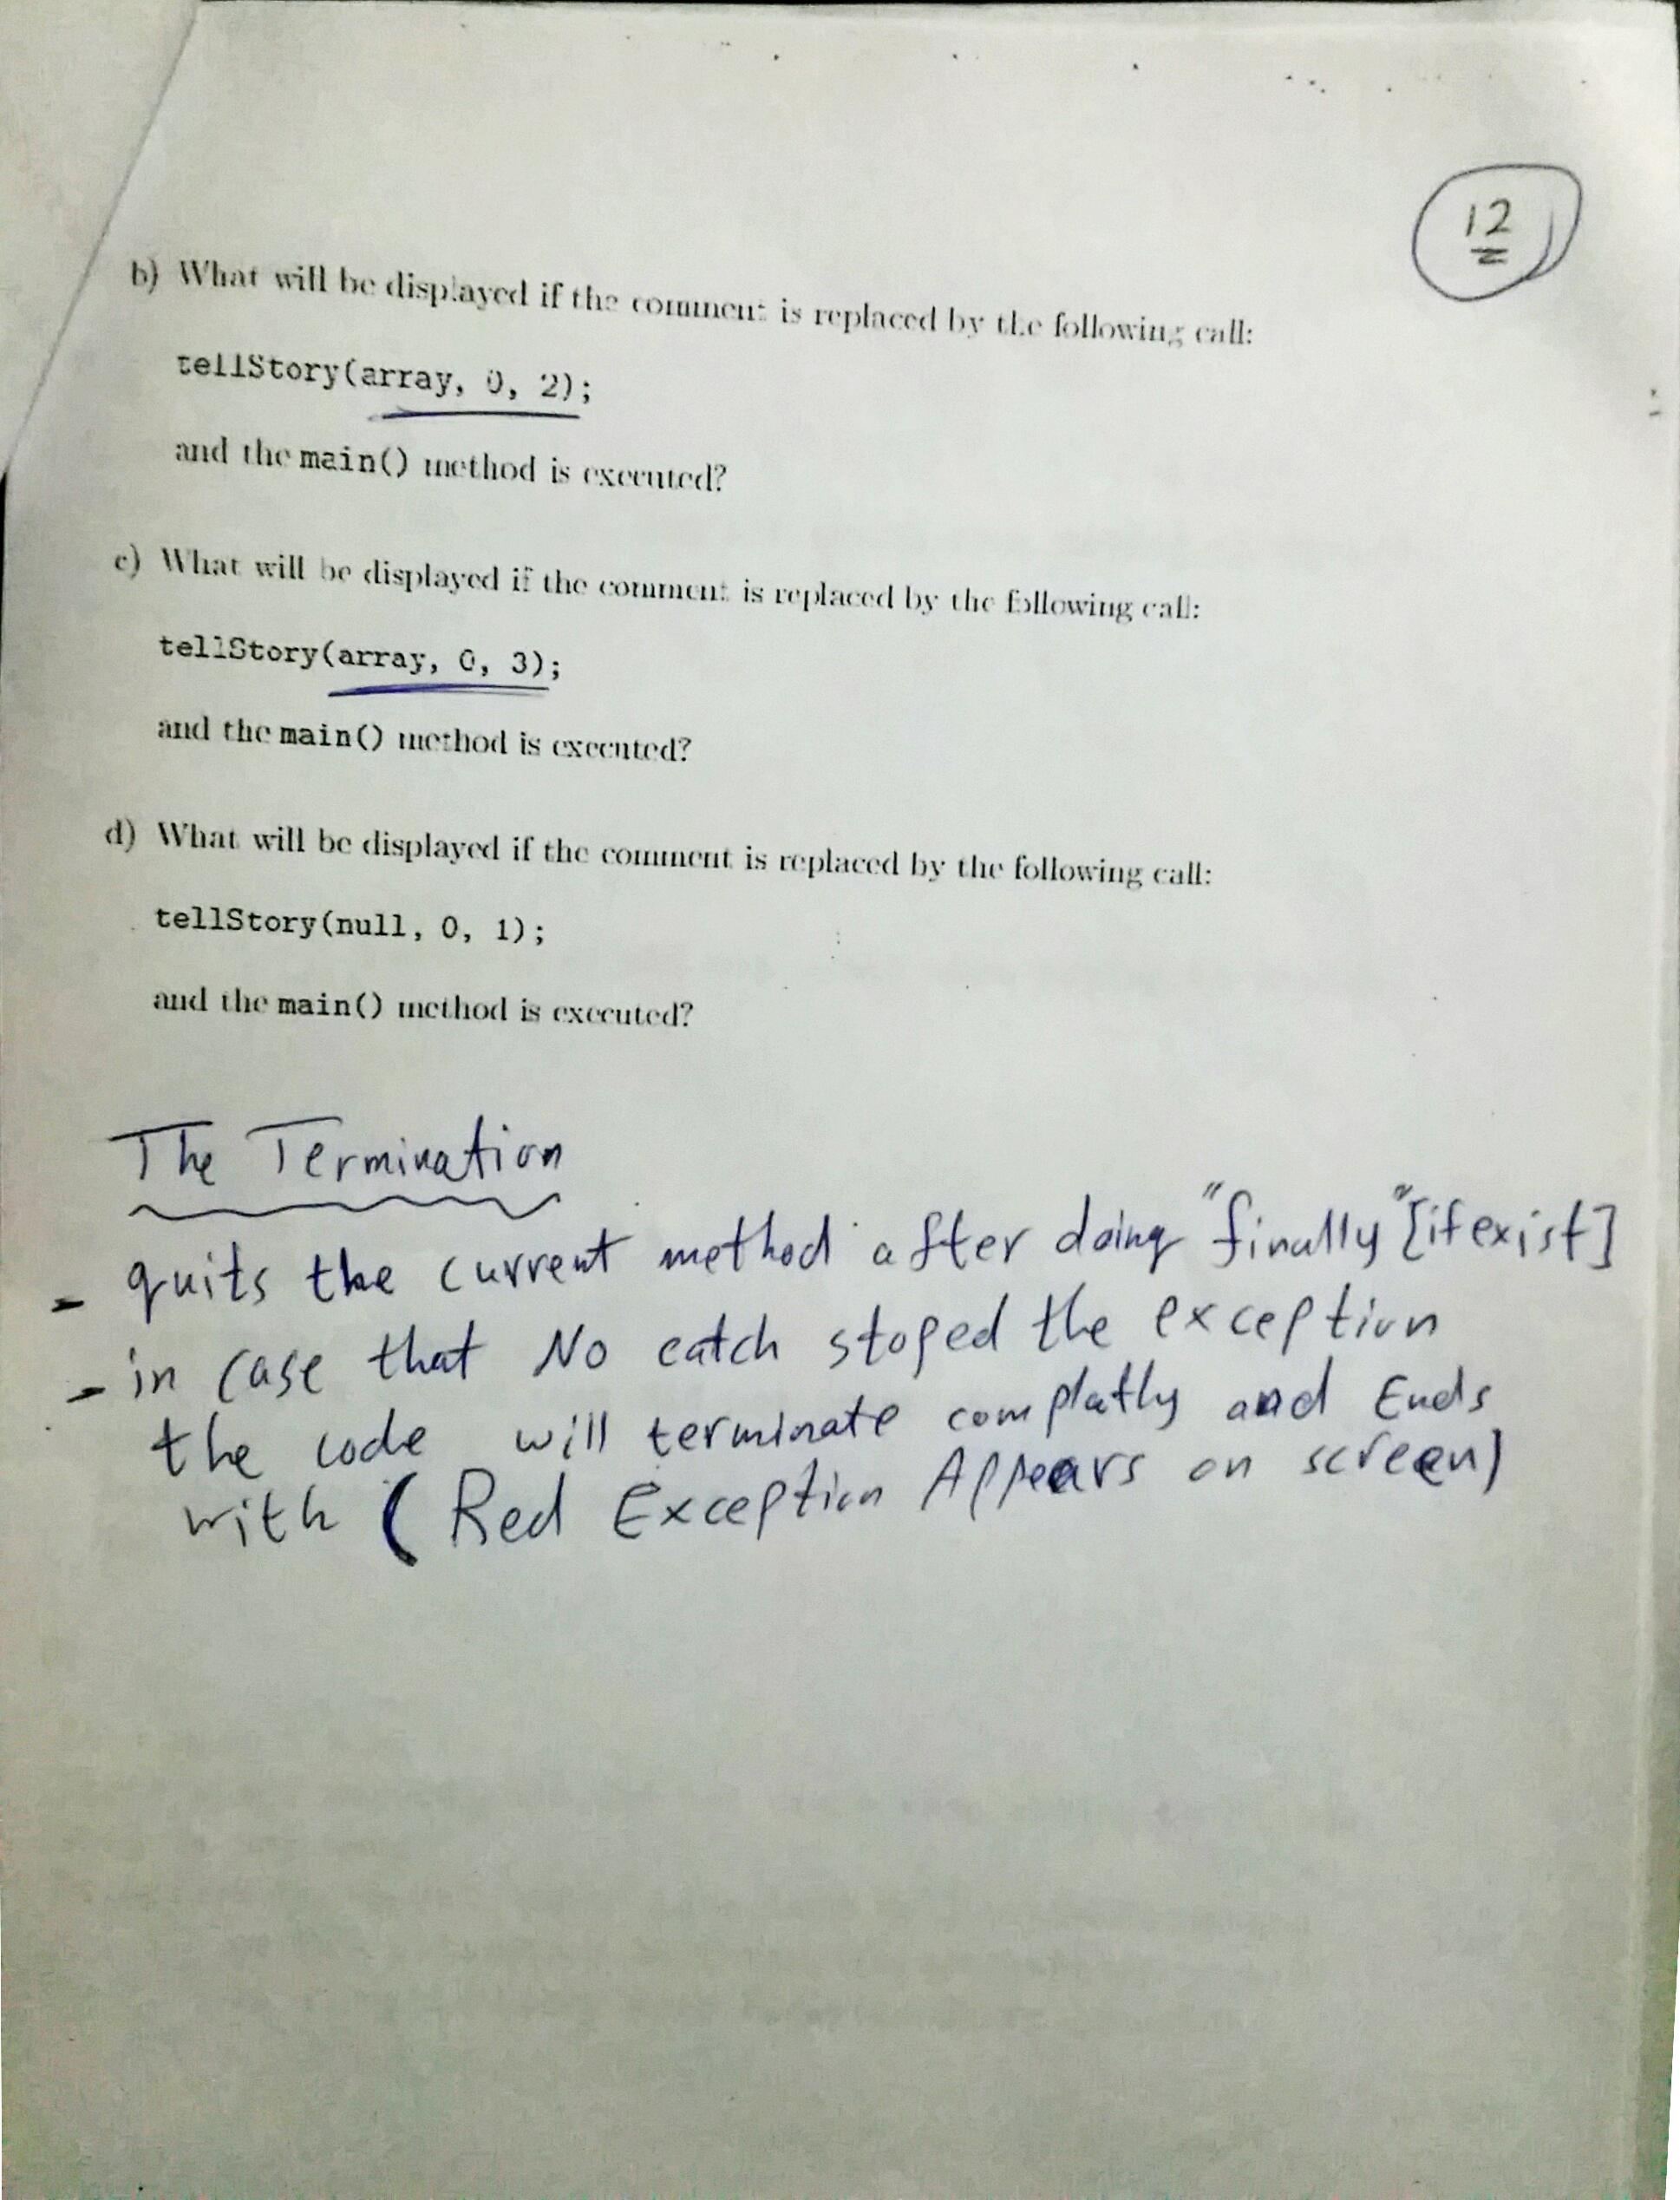 12
b) What will be displayed if the comment is replaced by the following call:
tellStory(array, 0, 2);
and the main() method is executed?
c) What will be displayed if the comment is replaced by the following call:
tellStory(array, 0, 3);
and the main() method is executed?
d) What will be displayed if the comment is replaced by the following call:
tellStory(null, 0, 1);
and the main() method is executed?
The Termination
- quits the current method after doing "finally" [if exist]
- in case that No catch stoped the exception
the code will terminate complatly and Ends
with (Red Exception Appears on screen)